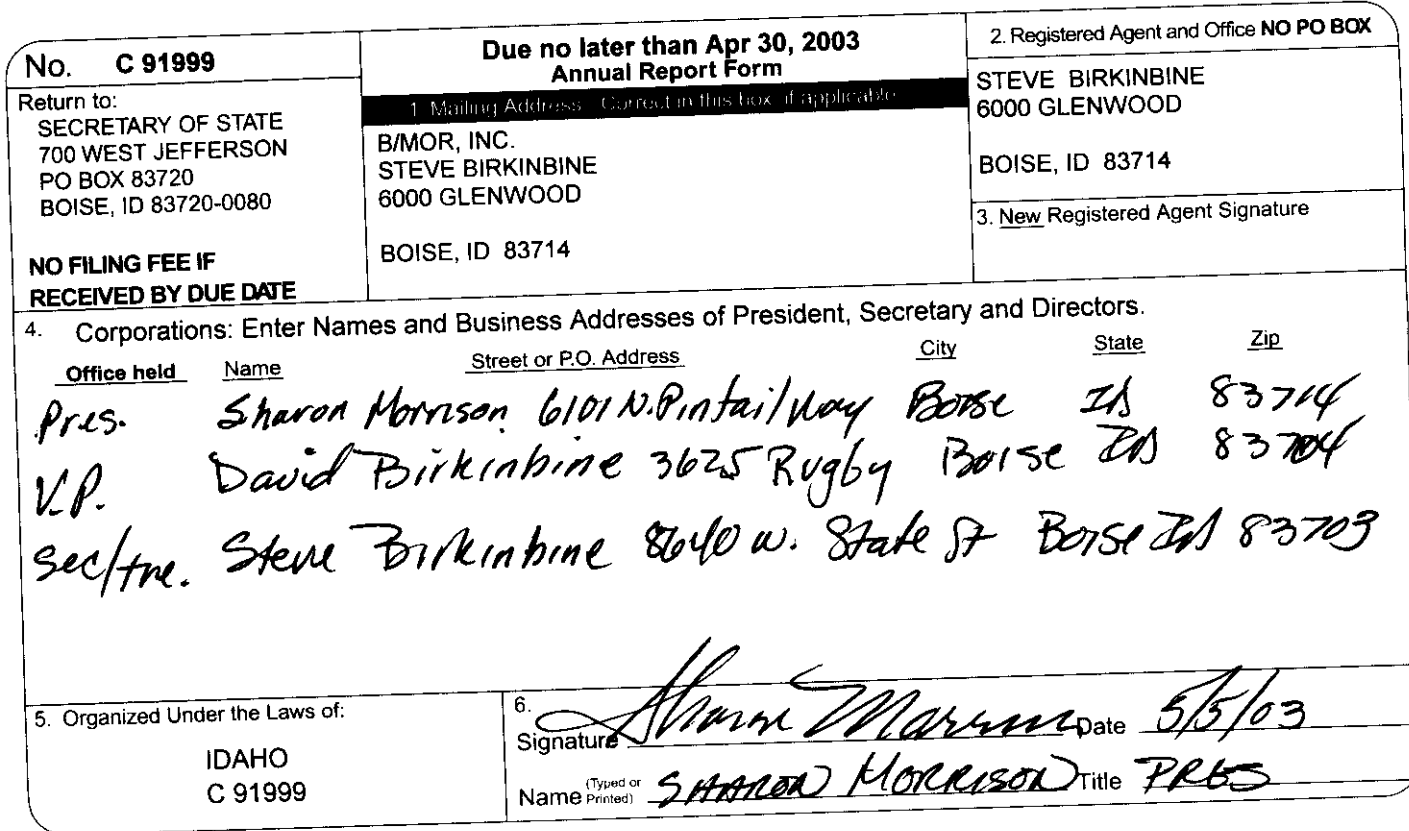 No. C 91999
Return to:
SECRETARY OF STATE
700 WEST JEFFERSON
PO BOX 83720
BOISE, ID 83720-0080
NO FILING FEE IF
RECEIVED BY DUE DATE
Due no later than Apr 30, 2003
Annual Report Form
1. Mailing Address: Correct in this box if applicable
B/MOR, INC.
STEVE BIRKINBINE
6000 GLENWOOD
BOISE, ID 83714
2. Registered Agent and Office NO PO BOX
STEVE BIRKINBINE
6000 GLENWOOD
BOISE, ID 83714
3. New Registered Agent Signature
4. Corporations: Enter Names and Business Addresses of President, Secretary and Directors.
Office held Name Street or P.O. Address City State Zip
Pres. Sharon Morrison 6101 N. Pintail Way Boise Id 83714
V.P. David Birkinbine 3625 Rugby Boise Id 83704
Sec/tre. Steve Birkinbine 8640 w. State St Boise Id 83703
5. Organized Under the Laws of:
IDAHO
C 91999
6.
Signature Sharon Morrison Date 5/5/03
Name (Typed or Printed) SHARON MORRISON Title PRES